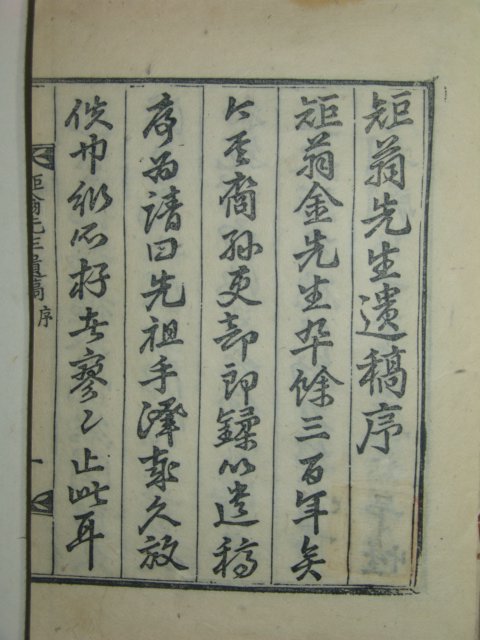 矩翁先生遺稿序
矩翁金先生卒餘三百年矣
今其裔孫吏部郎以遺稿
序爲請曰先祖手澤歲久放
佚巾衍所存者寥〻止此耳
矩翁先生遺稿 序 一